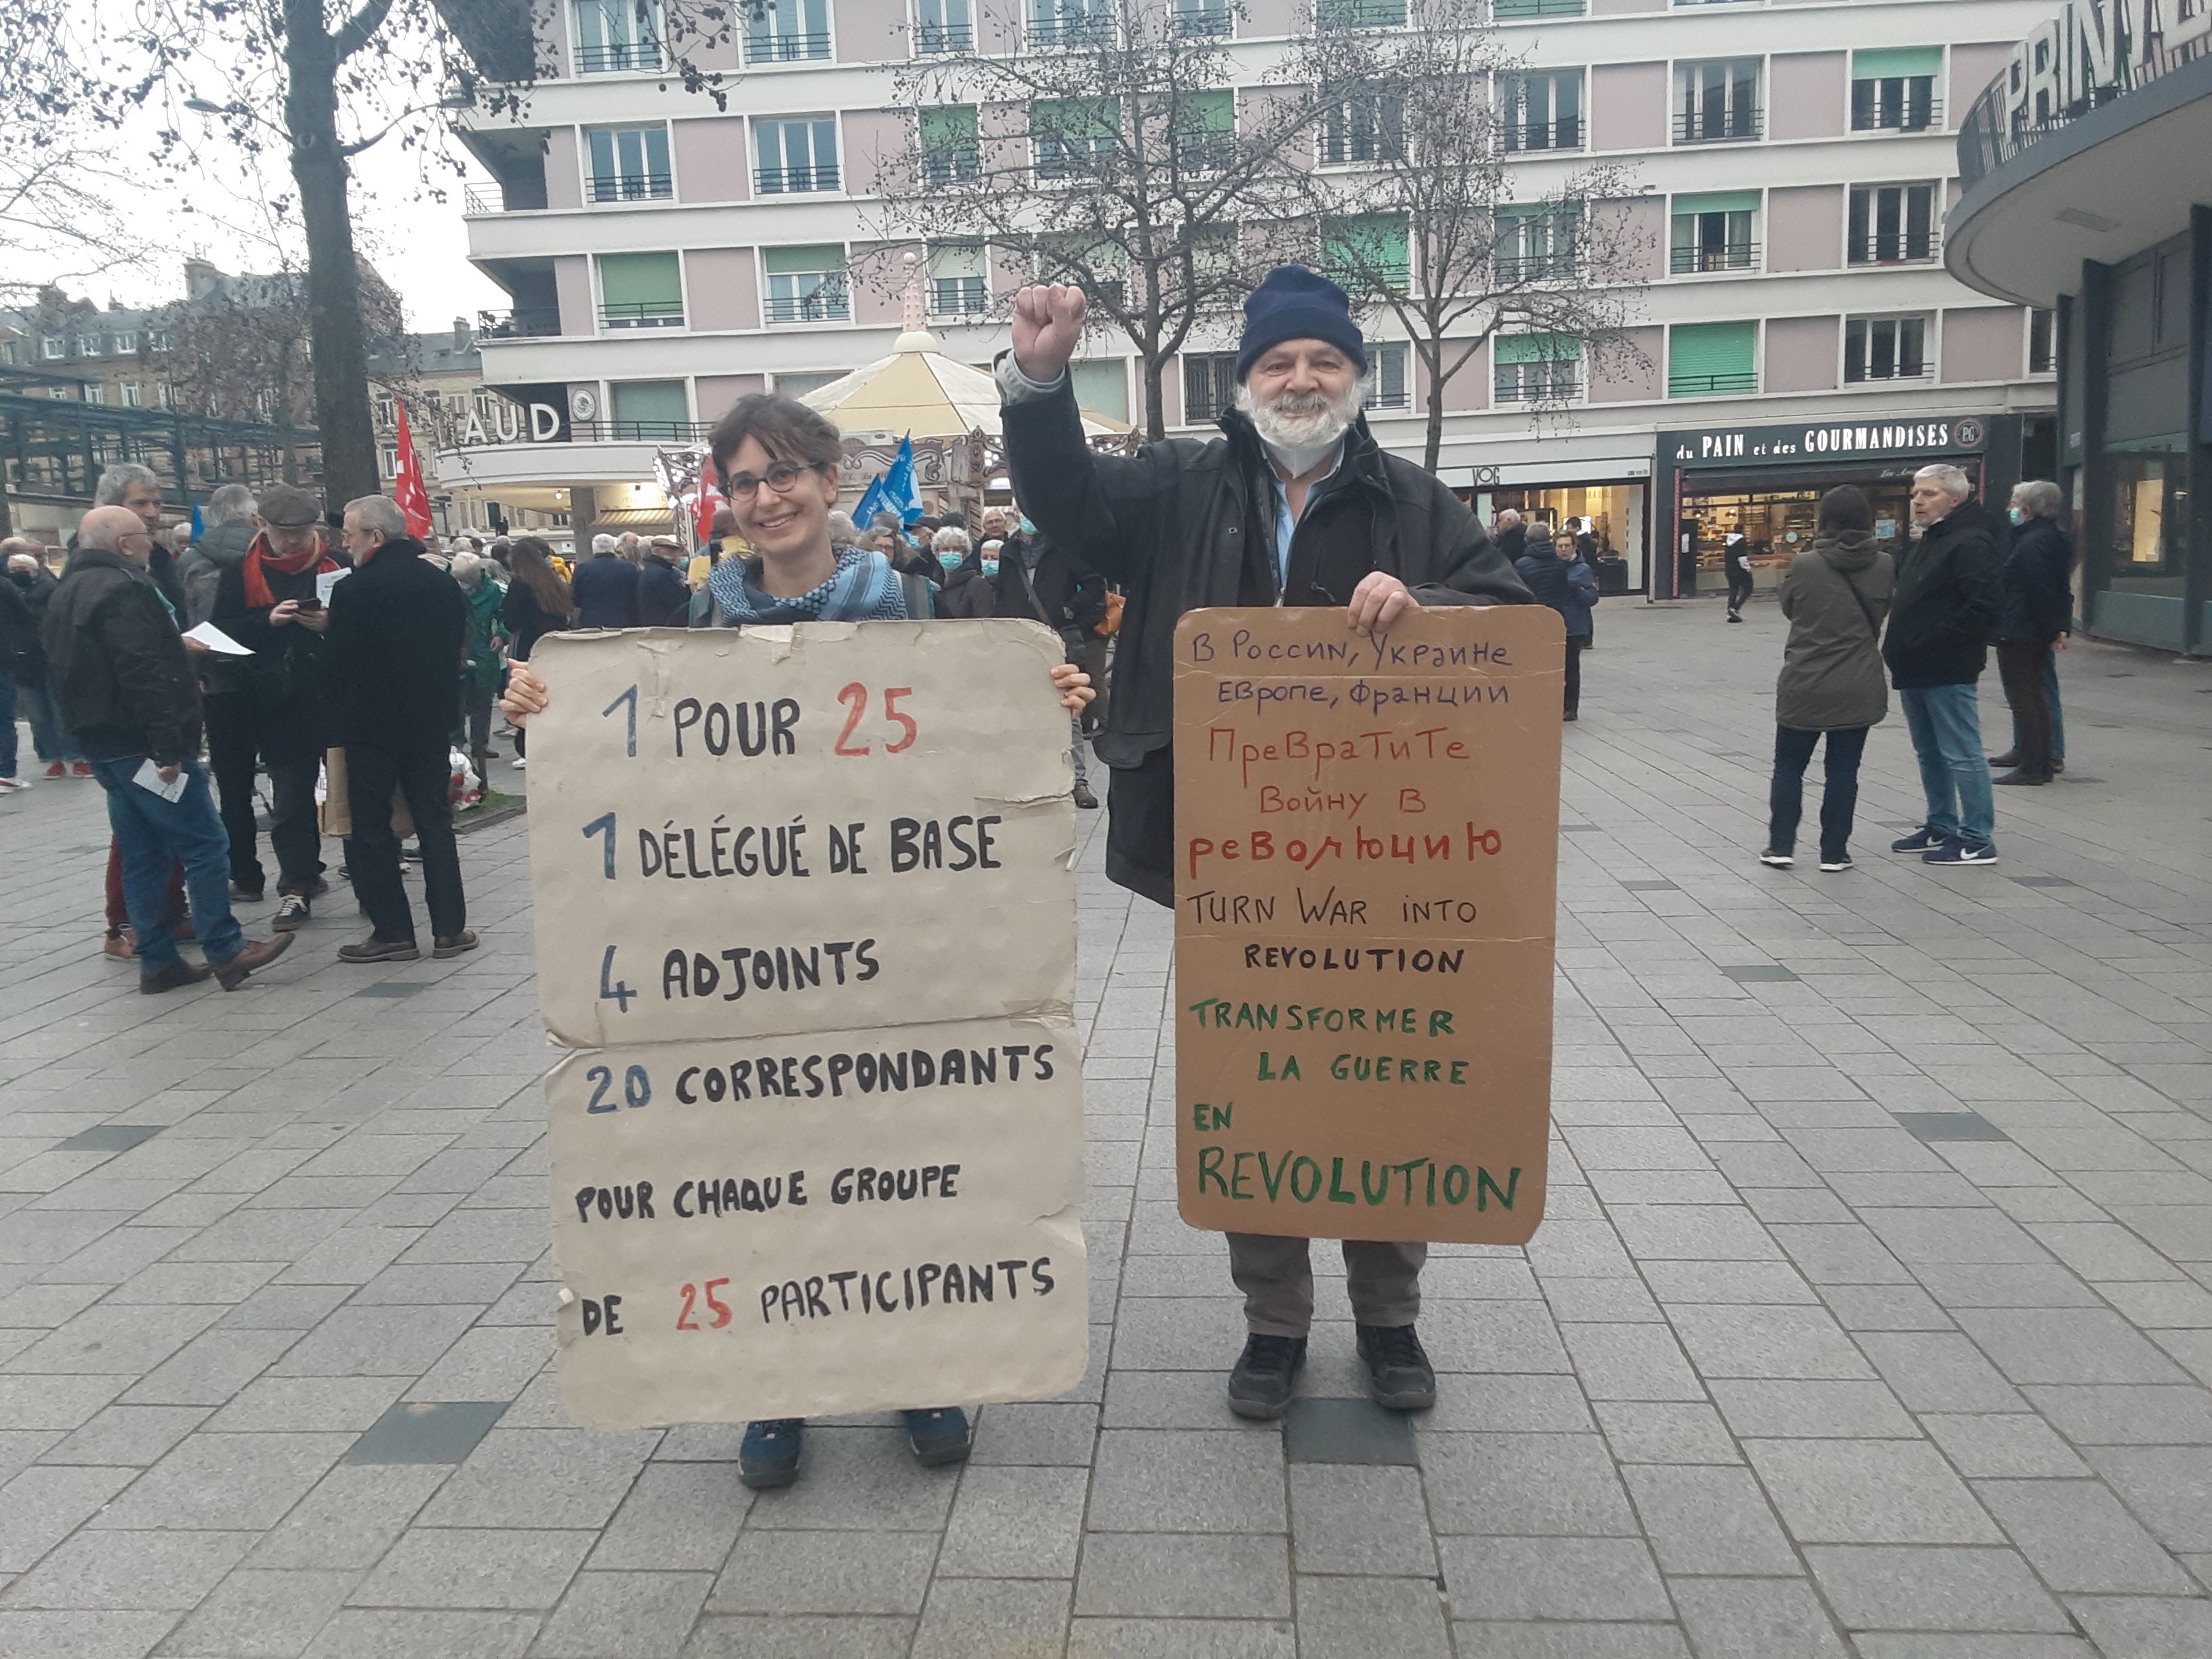 AUD
du PAIN et des GOURMANDISES
PG
VOG
1 POUR 25
1 DÉLÉGUÉ DE BASE
4 ADJOINTS
20 CORRESPONDANTS
POUR CHAQUE GROUPE
DE 25 PARTICIPANTS
В России, Украине
Европе, Франции
Превратите
Войну в
революцию
TURN WAR INTO
REVOLUTION
TRANSFORMER
LA GUERRE
EN
REVOLUTION